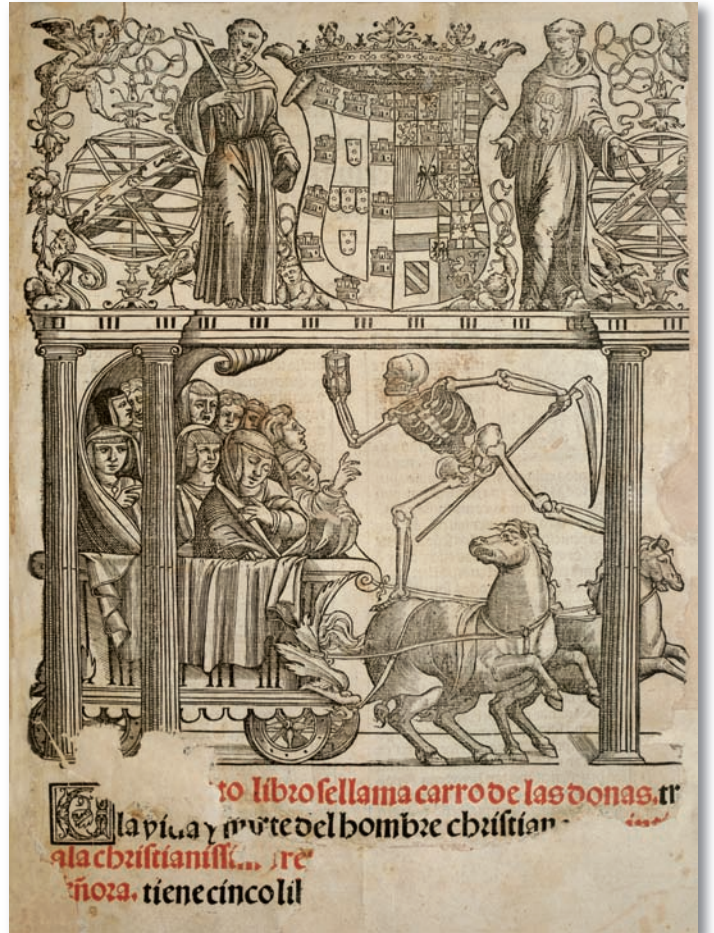 to libro se llama carro de las donas. tr
la vida y muerte del hombre christian
a la christianissi re
eñora. tiene cinco lib